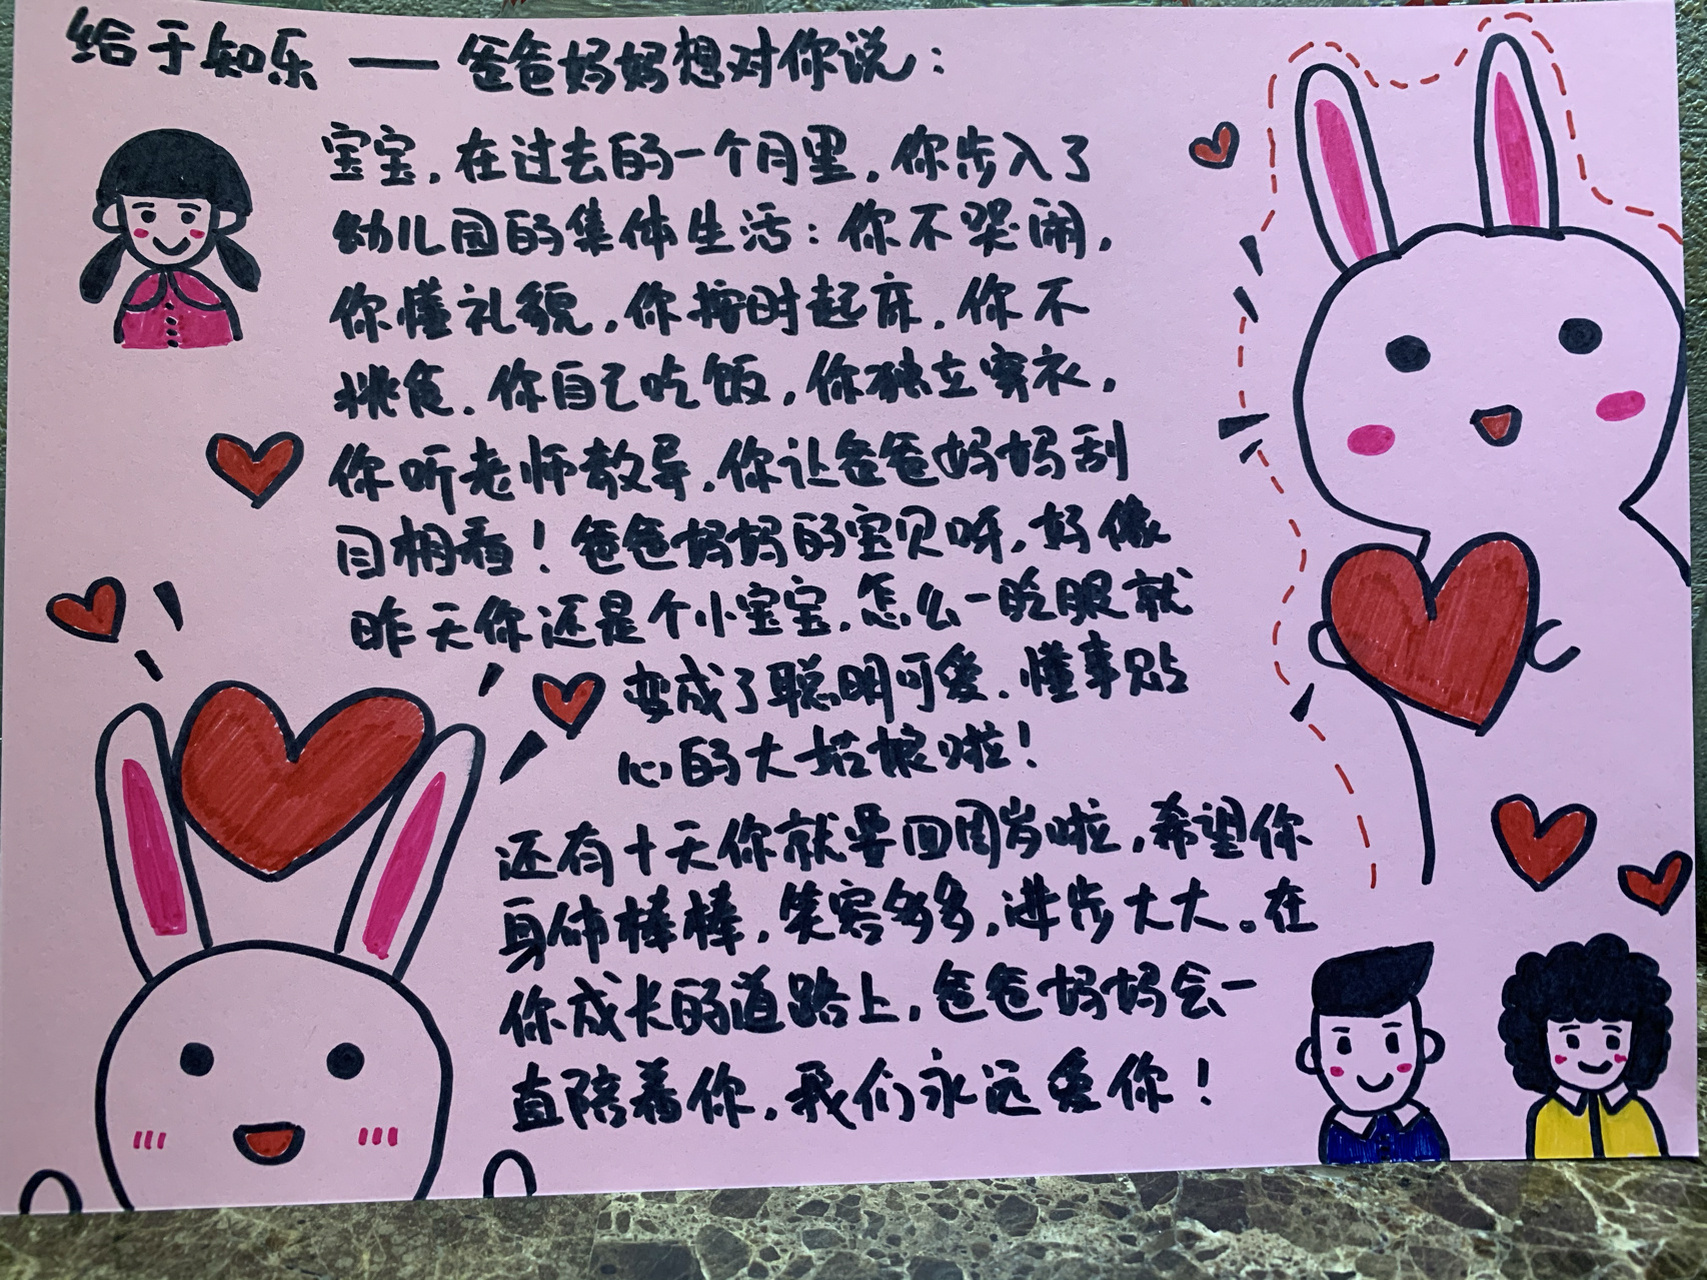 给于知乐 —— 爸爸妈妈想对你说：
宝宝，在过去的一个月里，你步入了
幼儿园的集体生活：你不哭闹，
你懂礼貌，你按时起床，你不
挑食，你自己吃饭，你独立穿衣，
你听老师教导，你让爸爸妈妈刮
目相看！爸爸妈妈的宝贝呀，好像
昨天你还是个小宝宝，怎么一眨眼就
变成了聪明可爱、懂事贴
心的大姑娘啦！
还有十天你就要四周岁啦，希望你
身体棒棒，笑容多多，进步大大。在
你成长的道路上，爸爸妈妈会一
直陪着你，我们永远爱你！